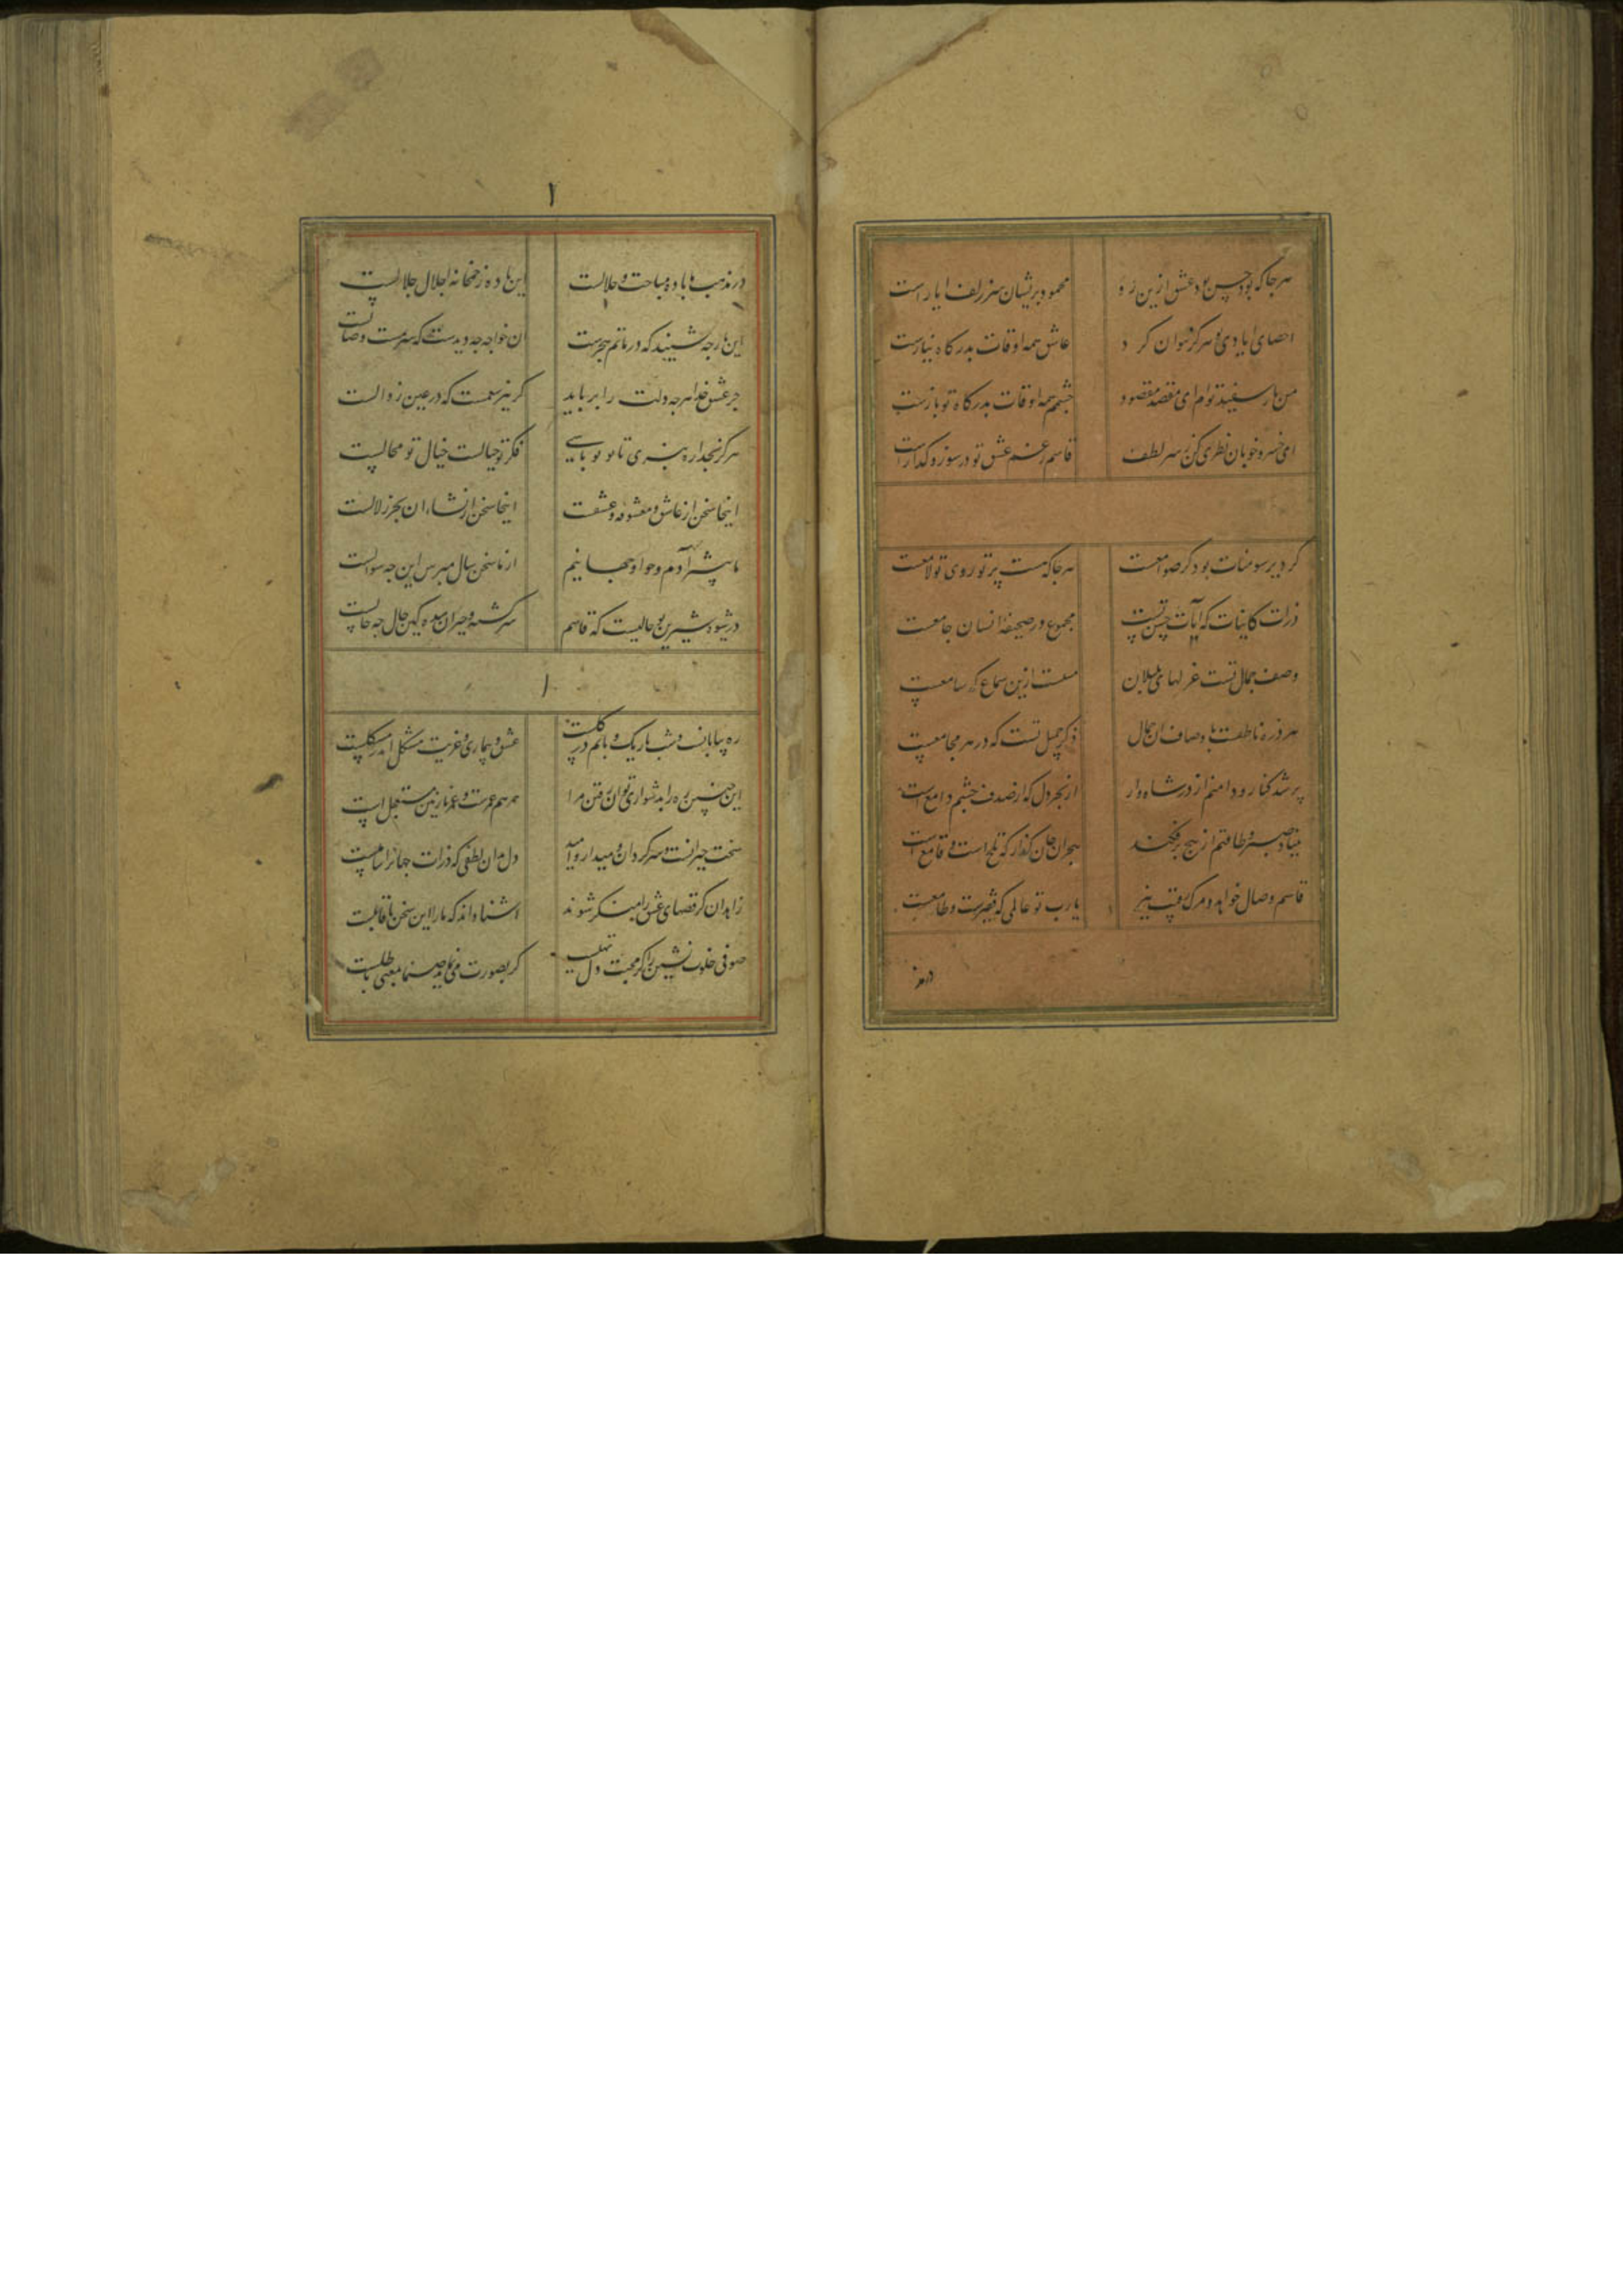 هر جا که بود حسن بود عشق ازین ره محمود پریشان سر زلف ایازست
احصای ایادی تو هرگز نتوان کرد عاشق همه اوقات بدرگاه نیازست
من بار سفینه توام ای مقصد مقصود چشمم همه اوقات بدرگاه تو بازست
ای خسرو خوبان نظری کن ز سر لطف قاسم ز غم عشق تو در سوز و گدازست
گر دیر سومنات بود گر صوامعست هر جا که هست پرتو روی تو لامعست
ذرات کاینات که آیات حسن تست مجموع در صحیفه انسان جامعست
وصف جمال تست غزلهای بلبلان مستست ازین سماع که سامعست
هر ذره ناطقست باوصاف آن جمال ذکر جمیل تست که در هر مجامعست
پر شد کنار و دامنم از در شاهوار از بحر دل که از صدف چشم دامعست
بنیاد صبر و طاقتم از بیخ برفکند هجران جان گداز که تلخ است و قامعست
قاسم وصال خواهد و مرک رقیب نیز یارب تو عالمی که فقیرست و طامعست
در مذ
۱
در مذهب ما باده مباحت و حلالست این باده ز خمخانه اجلال جلالست
این را چه شنیند که در ماتم هجرست آن خواجه چه دیدست که سرمست وصالست
جز عشق خدا هر چه دلت را برباید گر نیز سمست که در عین زوالست
هرگز بخدا ره نبری تا تو تو باشی فکر تو خیالست خیال تو محالست
اینجا سخن از عاشق و معشوقه و عشقست اینجا سخن از نشاء آن بحر زلالست
ما پیشتر آدم و حوا و جهانیم از ما سخن سال مپرس این چه سوالست
در شیوه شیرین تو حالیست که قاسم سرگشته و حیران شده کین حال چه حالست
۱
ره بیابانست و شب تاریک و پایم در گلست عشق و بیماری و غربت مشکل اندر مشکلست
این چنین ره را بدشواری توان رفتن مرا همرهم عمرست و عمر نازنین مستعجل است
سخت حیرانست و سرگردان و میدارد امید دل بدان لطفی که ذرات جهانرا شاملست
زاهدان گر قصهای عشق را منکر شوند آشنا داند که ما را این سخن با قابلست
صوفی خلوت نشین را کز محبت دل تهیست گر بصورت می نماید حق نما بمعنی باطلست